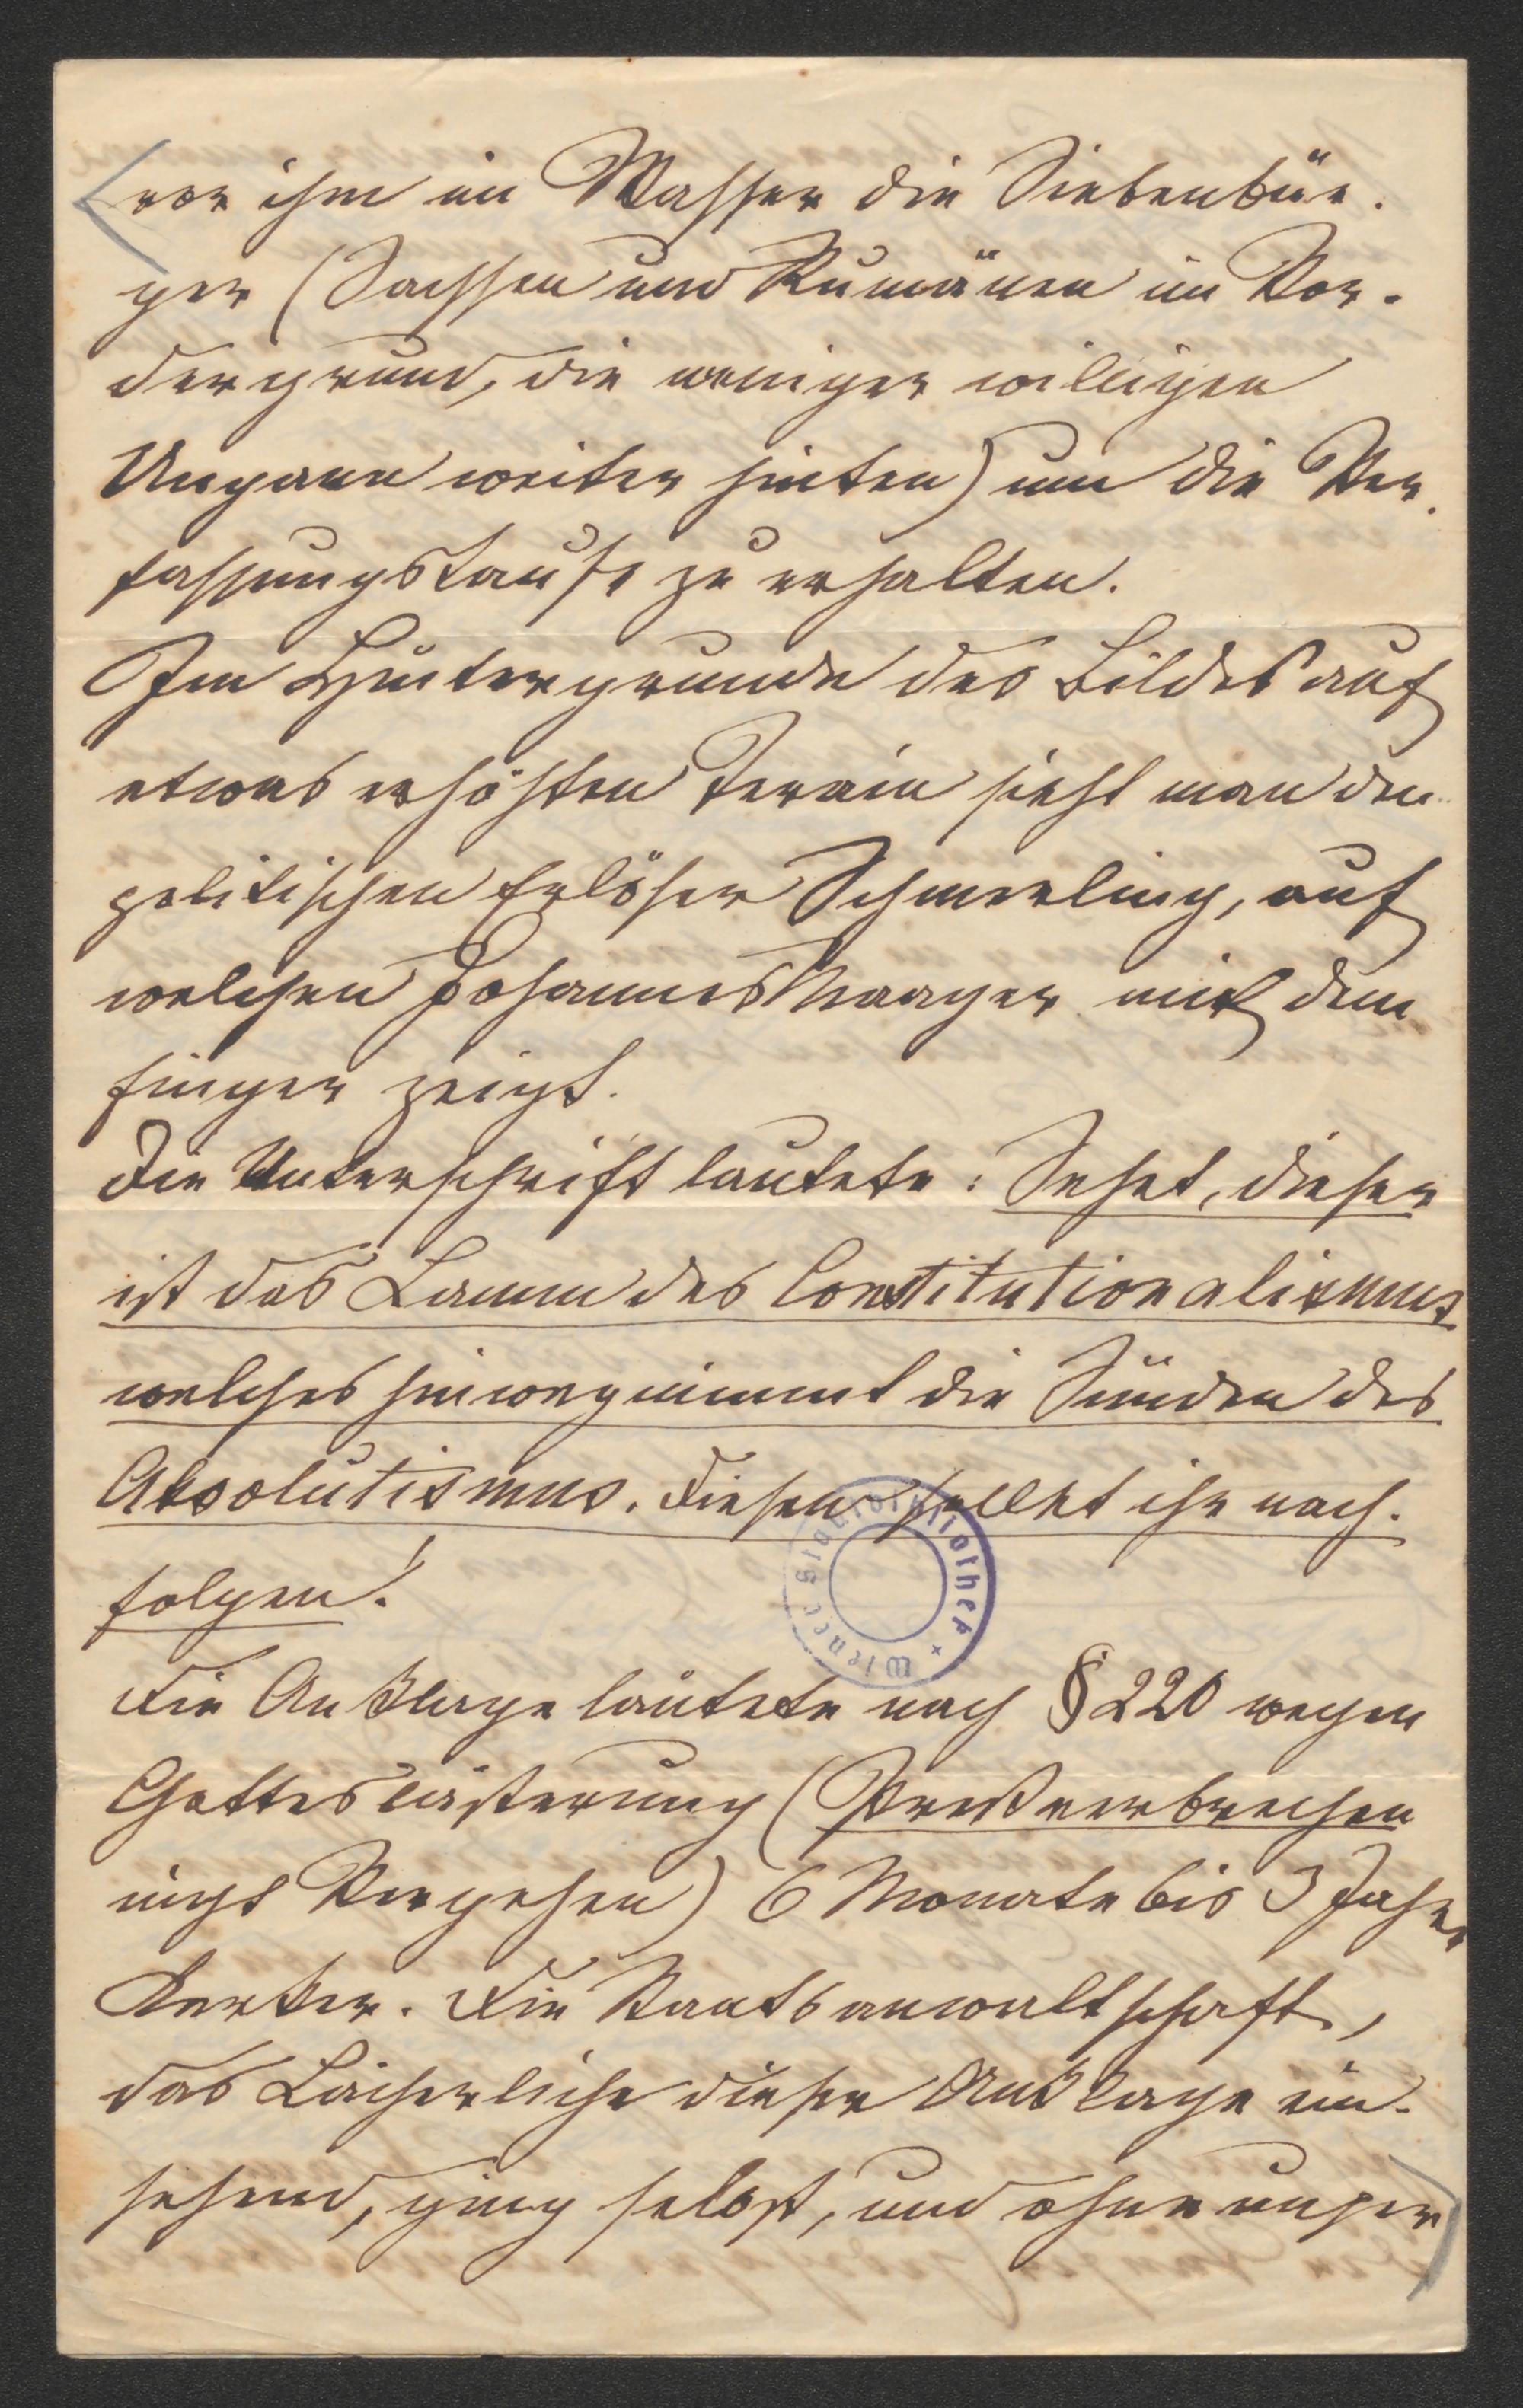 vor ihm im Wasser die Siebenbür.
ger (Sachsen und Rumänen im Vor.
dergrund, die weniger willigen
Ungarn weiter hinten) um die Ver.
fassungstaufe zu erhalten.
Im Hintergrunde des Bildes auf
etwas erhöhten Terrain sieht man den
politischen Erlöser Schmerling, auf
welchen Johannes Maager mit dem
Finger zeigt.
Die Unterschrift lautete: Sehet, dieser
ist das Lamm des Constitutionalismus
welches hinwegnimmt die Sünden des
Absolutismus. Diesen sollet ihr nach.
folgen!
Die Anklage lautete nach § 220 wegen
Gotteslästerung (Preßverbrechen
nicht Vergehen) 6 Monate bis 3 Jahre
Kerker. Die Staatsanwaltschaft,
das Lächerliche dieser Anklage ein-
sehend, ging selbst, und ohne unser
Wiener Stadtbibliothek +